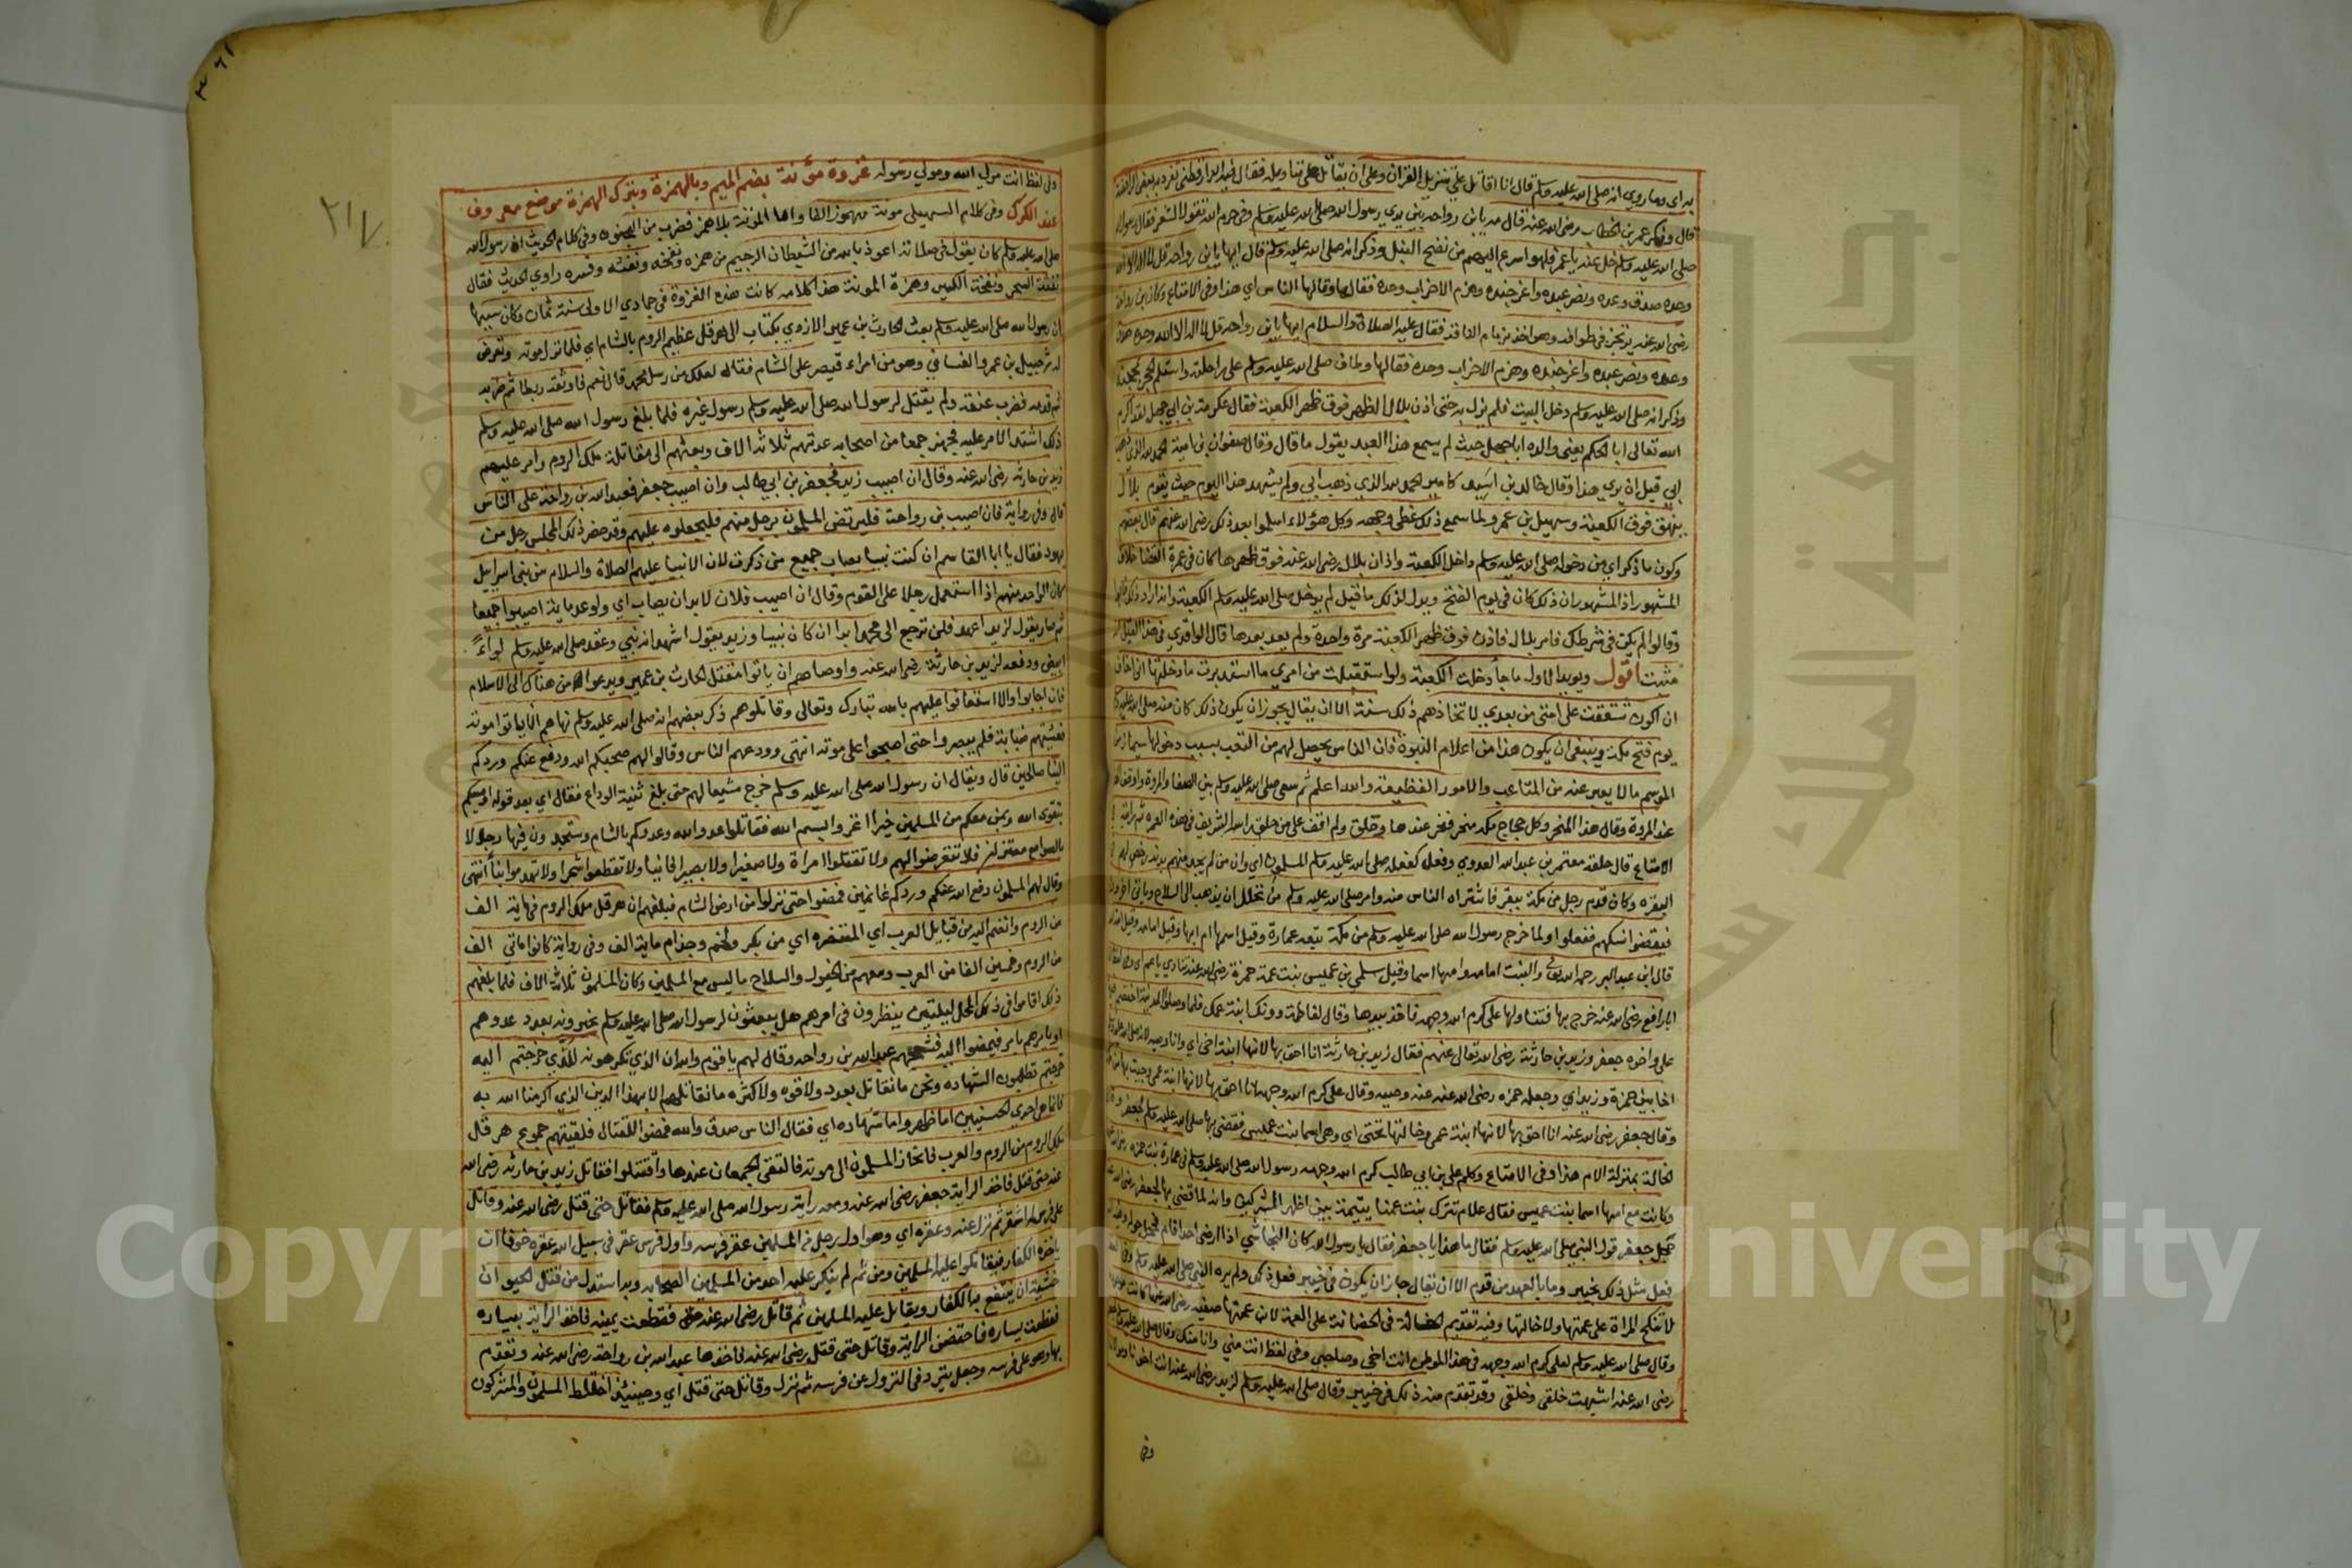 به اي وما روي انه صلى الله عليه وسلم قال انا اقاتل على تنزيل القران وعلي ان يقاتل على تاويله فقال فيه الدارقطني تفرد به بعض الرافضة
قال وذكر عمر بن الخطاب رضى الله عنه قال مه يا ابن رواحة بين يدي رسول الله صلى الله عليه وسلم وفى حرم الله تقول الشعر فقال رسول
صلى الله عليه وسلم خل عنه يا عمر فلهو اسرع اليهم من نضح النبل وذكر انه صلى الله عليه وسلم قال ايها يا ابن رواحة قل لا اله الا الله
وحده صدق وعده ونصر عبده واعز جنده وهزم الاحزاب وحده فقالها وقالها الناس اي هذا وفى الامتاع وكان ابن رواحة
رضى الله عنه يرتجز فى طوافه وهو اخذ بزمام الناقة فقال عليه الصلاة والسلام ايها يا ابن رواحه قل لا اله الا الله وحده صدق
وعده ونصر عبده واعز جنده وهزم الاحزاب وحده فقالها وطاف صلى الله عليه وسلم على راحلته واستلم الحجر بمحجنه
وذكر انه صلى الله عليه وسلم دخل البيت فلم يزل به حتى اذن بلال الظهر فوق ظهر الكعبة فقال عكرمة بن ابي جهل لقد اكرم
الله تعالى ابا الحكم يعنى والده ابا جهل حيث لم يسمع هذا العبد يقول ما قال وقال صفوان بن امية الحمد لله الذي اذهب
ابي قبل ان يري هذا وقال خالد بن اسيد كامير الحمد لله الذي ذهب ابي ولم يشهد هذا اليوم حيث يقوم بلال
ينهق فوق الكعبة وسهيل بن عمرو لما سمع ذلك غطى وجهه وكل هؤلاء اسلموا بعد ذلك رضى الله عنهم قال بعضهم
وكون ما ذكر اي من دخوله صلى الله عليه وسلم داخل الكعبة واذان بلال رضى الله عنه فوق ظهرها كان فى عمرة القضا خلاف
المشهور اذ المشهور ان ذلك كان فى يوم الفتح ويدل لذلك ما قيل لم يدخل صلى الله عليه وسلم الكعبة وانه اراد ذلك فابوا
وقالوا لم يكن فى شرطك فامر بلالا فاذن فوق ظهر الكعبة مرة واحدة ولم يعد بعدها قال الواقدي وهذا القيل
مثبت اقول ويويد الاول ما جأ دخلت الكعبة ولو استقبلت من امري ما استدبرت ما دخلتها انى اخاف
ان اكون شققت على امتى من بعدي لاتخاذهم ذلك سنة الا ان يقال يجوز ان يكون ذلك كان منه صلى الله عليه وسلم
يوم فتح مكة وينبغى ان يكون هذا من اعلام النبوة فان الناس يحصل لهم من التعب بسبب دخولها سيما زمن
الموسم ما لا يعبر عنه من المتاعب والامور الفظيعة والله اعلم ثم سعى صلى الله عليه وسلم بين الصفا والمروة واوقف الهدي
عند المروة وقال هذا المنحر وكل فجاج مكة منحر فنحر عندها وحلق ولم اقف على من حلق راسه الشريف فى هذه العمرة ثم رايت في
الامتاع قال حلقه معتمر بن عبد الله العدوي وفعل كفعله صلى الله عليه وسلم المسلمون اي وان من لم يجد منهم بدنة رخص لهم في
البقرة وكان قدم رجل من مكة ببقر فاشتراه الناس منه وامر صلى الله عليه وسلم من تحلل ان يذهب الى السلاح وياتى اخرون
فيقضوا نسكهم ففعلوا ولما خرج رسول الله صلى الله عليه وسلم من مكة تبعه عمارة وقيل اسمها ام ابيها وقيل امامه وقيل امة الله
قال ابن عبد البر رحمه الله تعالى والبنت امامه وامها اسما وقيل سلمي بن عميس بنت عمه حمزة رضى الله عنه تنادي يا عم اي وفى لفظ ان
ابا رافع رضى الله عنه خرج بها فتناولها على كرم الله وجهه فاخذ بيدها وقال لفاطمة دونك ابنة عمك فلما وصلوا المدينة اختصم فيها
على واخوه جعفر وزيد بن حارثة رضى الله تعالى عنهم فقال زيد بن حارثة انا احق بها لانها ابنة اخى اي وانا وصيه لانه صلى الله عليه وسلم
اخا بين حمزة وزيد اي وجعله حمزه رضى الله عنه عنه وصيه وقال على كرم الله وجهه انا احق بها لانها ابنة عمى وجيت بها من مكة
وقال جعفر رضى الله عنه انا احق بها لانها ابنة عمى وخالتها تحتى اي وهى اسما بنت عميس فقضى بها صلى الله عليه وسلم لجعفر وقال
الخالة بمنزلة الام هذا وفى الامتاع وكلم على بن ابي طالب كرم الله وجهه رسول الله صلى الله عليه وسلم فى عمارة بنت حمزه رضى الله عنه
وكانت مع امها اسما بنت عميس فقال علام تترك بنت عمنا يتيمة بين اظهر المشركين وانه لما قضى بها لجعفر رضى الله عنه
حجل جعفر حول النبى صلى الله عليه وسلم فقال ما هذا يا جعفر فقال يا رسول الله كان النجاشي اذا ارضى احدا قام فحجل حوله
فعل مثل ذلك بخيبر وما بالعهد من قدم الا ان يقال جاز ان يكون فى خيبر فعل ذلك ولم يره النبى صلى الله عليه وسلم
لا تنكح المراة على عمتها ولا خالتها وفيه تقديم الخالة فى الحضانة على العمة لان عمتها صفية رضى الله عنها كانت موجودة
وقال صلى الله عليه وسلم لعلى كرم الله وجهه فى هذا الموطن انت اخى وصاحبي وفى لفظ انت مني وانا منك وقال صلى الله عليه وسلم لجعفر
رضى الله عنه اشبهت خلقى وخلقى وقد تقدم منه ذلك فى خيبر وقال صلى الله عليه وسلم لزيد رضى الله عنه انت اخونا ومولانا
وفى
٣٦١
٢١٧
وفى لفظ انت مولى الله ومولى رسوله غزوة مؤتة بضم الميم وبالهمزة وبترك الهمزة موضع معروف
عند الكرك وفى كلام السهيلى موتة مهموز الفا واما الموتة بلا همز فضرب من الجنون وفى كلام الحريث ان رسول الله
صلى الله عليه وسلم كان يقول فى صلاته اعوذ بالله من الشيطان الرجيم من همزه ونفخه ونفثه وفسره راوي الحديث فقال
نفثة السحر ونفخة الكبر وهمزة الموتة هذا كلامه كانت هذه الغزوة فى جمادي الاولى سنة ثمان وكان سببها
ان رسول الله صلى الله عليه وسلم بعث الحارث بن عمير الازدي بكتاب الى هرقل عظيم الروم بالشام اي فلما نزل موتة وتعرض
له شرحبيل بن عمرو الغساني وهو من امراء قيصر على الشام فقال لعلك من رسل محمد قال نعم فاوثقه ربطا ثم ضربه
ثم قدمه فضرب عنقه ولم يقتل لرسول الله صلى الله عليه وسلم رسول غيره فلما بلغ رسول الله صلى الله عليه وسلم
ذلك اشتد الامر عليه فجهز جمعا من اصحابه عدتهم ثلاثة الاف وبعثهم الى مقاتلة ملك الروم وامر عليهم
زيد بن حارثه رضى الله عنه وقال ان اصيب زيد فجعفر بن ابي طالب وان اصيب جعفر فعبد الله بن رواحة على الناس
قال وفى رواية فان اصيب ابن رواحة فليرتض المسلمون برجل منهم فليجعلوه عليهم وقد حضر ذلك المجلس رجل من
يهود فقال يا ابا القاسم ان كنت نبيا يصاب جميع من ذكرت لان الانبيا عليهم الصلاة والسلام من بنى اسراييل
كان الواحد منهم اذا استعمل رجلا على القوم وقال ان اصيب فلان لا بد ان يصاب اي ولو عد ماية اصيبوا جميعا
ثم صار يقول لزيد اعهد فلن ترجع الى محمد ابدا ان كان نبيا وزيد يقول اشهد انه نبي وعقد صلى الله عليه وسلم لواءً
ابيض ودفعه لزيد بن حارثة رضى الله عنه واوصاهم ان ياتوا مقتل الحارث بن عمير ويدعوا من هناك الى الاسلام
فان اجابوا والا استعانوا عليهم بالله تبارك وتعالى وقاتلوهم ذكر بعضهم انه صلى الله عليه وسلم نهاهم ان ياتوا موتة
فغشيتهم ضبابة فلم يبصروا حتى اصبحوا على موتة انتهى وودعهم الناس وقالوا لهم صحبكم الله ودفع عنكم وردكم
الينا صالحين قال ويقال ان رسول الله صلى الله عليه وسلم خرج مشيعا لهم حتى بلغ ثنية الوداع فقال اي بعد قوله اوصيكم
بتقوى الله وبمن معكم من المسلمين خيرا اغزوا بسم الله فقاتلوا عدو الله وعدوكم بالشام وستجدون فيها رجالا
بالصوامع معتزلين فلا تتعرضوا لهم ولا تقتلوا امراة ولا صغيرا ولا بصيرا فانيا ولا تقطعوا شجرا ولا تهدموا بنأ انتهى
وقال لهم المسلمون دفع الله عنكم وردكم غانمين فمضوا حتى نزلوا من ارض الشام فبلغهم ان هرقل ملك الروم فى ماية الف
من الروم وانضم اليه من قبايل العرب اي المتنصره اي من بكر ولخم وجذام ماية الف وفى رواية كانوا مائتي الف
من الروم وخمسين الفا من العرب ومعهم من الخيول والسلاح ما ليس مع المسلمين وكان المسلمون ثلاثة الاف فلما بلغهم
ذلك اقاموا فى ذلك المحل ليلتين ينظرون فى امرهم هل يبعثون لرسول الله صلى الله عليه وسلم يخبرونه بعدد عدوهم
او يامرهم بامر فيمضوا اليه فشجعهم عبد الله بن رواحه وقال لهم يا قوم والله ان الذي تكرهونه للذي خرجتم اليه
خرجتم تطلبون الشهاده ونحن ما نقاتل بعدد ولا قوه ولا كثره ما نقاتلهم الا بهذا الدين الذي اكرمنا الله به
فانما هى احدي الحسنيين اما ظهور واما شهاده اي فقال الناس صدق والله فمضوا للقتال فلقيتهم جموع هرقل
ملك الروم من الروم والعرب فانحاز المسلمون الى موتة فالتقى الجمعان عندها واقتتلوا فقاتل زيد بن حارثه رضى الله
عنه حتى قتل فاخذ الراية جعفر رضى الله عنه ومعه راية رسول الله صلى الله عليه وسلم فقاتل حتى قتل رضى الله عنه وقاتل
على فرس له اشقر ثم نزل عنه وعقره اي وهو اول رجل من المسلمين عقر فرسه واول فرس عقر فى سبيل الله عقره خوفا ان
ياخذه الكفار فيقاتلوا عليه المسلمين ومن ثم لم ينكر عليه احد من المسلمين الصحابه وبه استدل من قتل الحيوان
خشية ان ينتفع به الكفار ويقاتل عليه المسلمين ثم قاتل رضى الله عنه فقطعت يمينه فاخذ الراية بيساره
فقطعت يساره فاحتضن الراية وقاتل حتى قتل رضى الله عنه فاخذها عبد الله بن رواحة رضى الله عنه وتقدم
بها وهو على فرسه وجعل يتردد فى النزول عن فرسه ثم نزل وقاتل حتى قتل اي وحينيذ اختلط المسلمون والمشركون
Copyright © Umm Al-Qura University
جامعة أم القرى